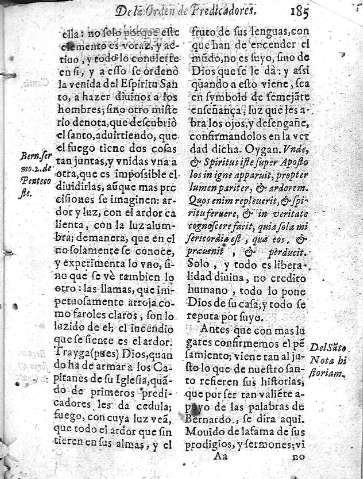 De la Orden de Predicadores. 185
ella: no solo porque este
elemento es voraz, y ac-
tiuo, y todo lo conuierte
en si, y a esso se ordenò
la venida del Espiritu San
to, a hazer diuinos a los
hombres; sino otro miste
rio denota, que descubriò
el santo, aduirtiendo, que
el fuego tiene dos cosas
tan juntas, y vnidas vna a
otra, que es impossible el
diuidirlas, aũque mas pre
cisiones se imaginen: ar-
dor y luz, con el ardor ca
lienta, con la luz alum-
bra; demanera, que en el
no solamente se conoce,
y experimenta lo vno, si-
no que se vè tambien lo
otro: las llamas, que im-
petuosamente arroja co-
mo faroles claros, son lo
luzido de el; el incendio
que se siente es el ardor.
Trayga (pues) Dios, quan
do ha de armar a los Ca-
pitanes de su Iglesia, quã-
do de primeros predi-
cadores les da cedula;
fuego, con cuya luz veã,
que todo el ardor que sin
tieren en sus almas, y el
Bern. ser
mo. 2. de
Penteco
ste.
fruto de sus lenguas, con
que han de encender el
mũdo, no es suyo, sino de
Dios que se le dà: y assi
quando a esto viene, sea
en symbolo de semejãte
enseñança, luz que les a-
bra los ojos, y desengañe,
confirmandolos en la ver
dad dicha. Oygan. Vnde,
& Spiritus iste super Aposto
los in igne apparuit, propter
lumen pariter, & ardorem.
Quos enim repleuerit, & spi-
ritu feruere, & in veritate
cognoscere facit, quia sola mi
sericordia est, quæ eos. &
præuenit, & perducit.
Solo, y todo es libera-
lidad diuina, no credito
humano, todo lo pone
Dios de su casa, y todo se
reputa por suyo.
Antes que con mas lu
gares confirmemos el pẽ
samiento, viene tan al jus
to lo que de nuestro san-
to refieren sus historias,
que por ser tan valiẽte a-
poyo de las palabras de
Bernardo, se dira aqui.
Mouido de la fama de sus
prodigios, y sermones; vi
Del Sãto
Nota hi
storiam.
Aa no